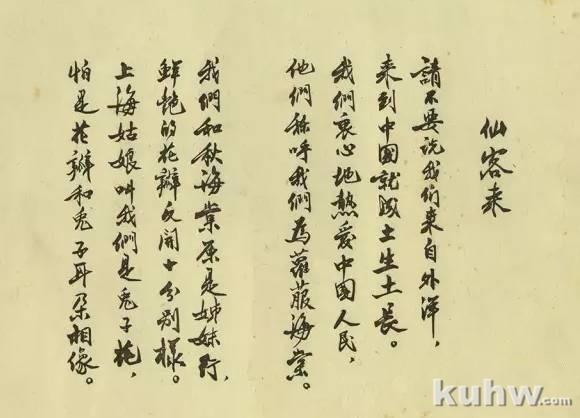 仙客来
請不要説我们来自外洋，
来到中國就成土生土長。
我們衷心地熱爱中國人民，
他們称呼我們為蘿菔海棠。
我們和秋海棠原是姊妹行，
鮮艳的花瓣反開十分别樣。
上海姑娘叫我們是兎子花，
怕是花瓣和兎子耳朵相像。
kuhw.com